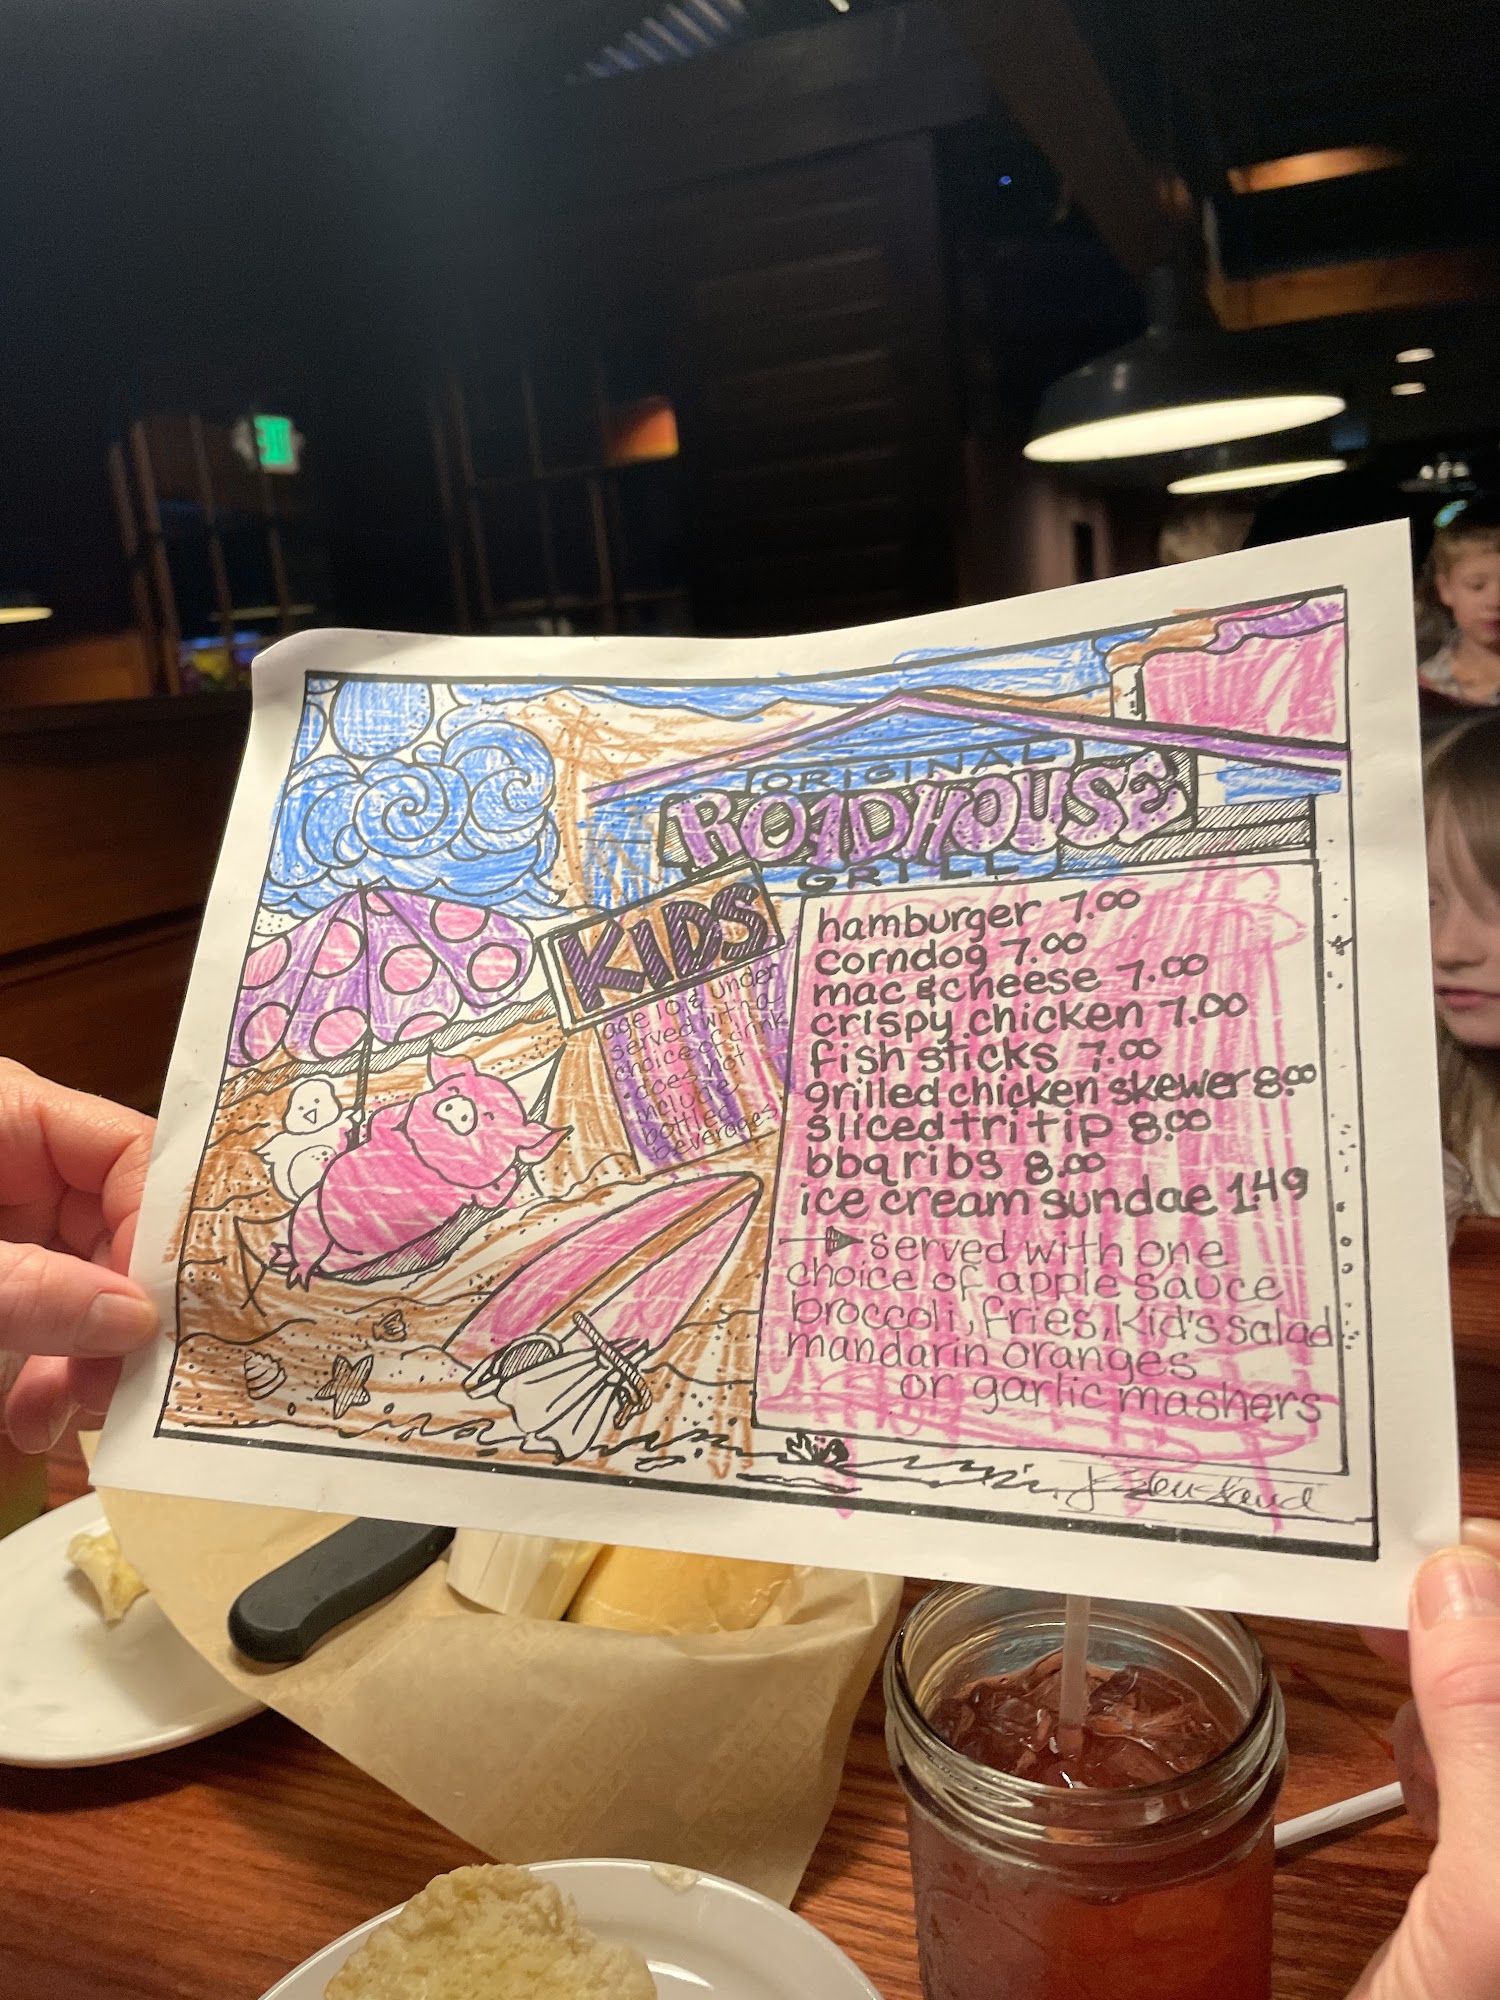 ORIGINAL
ROADHOUSE
GRILL
KIDS
age 10 & under
served with a
choice of drink
• does not
include
bottled
beverages
hamburger 7.00
corndog 7.00
mac & cheese 7.00
crispy chicken 7.00
fish sticks 7.00
grilled chicken skewer 8.00
sliced tri tip 8.00
bbq ribs 8.00
ice cream sundae 1.49
served with one
choice of apple sauce
broccoli, fries, kid's salad
mandarin oranges
or garlic mashers